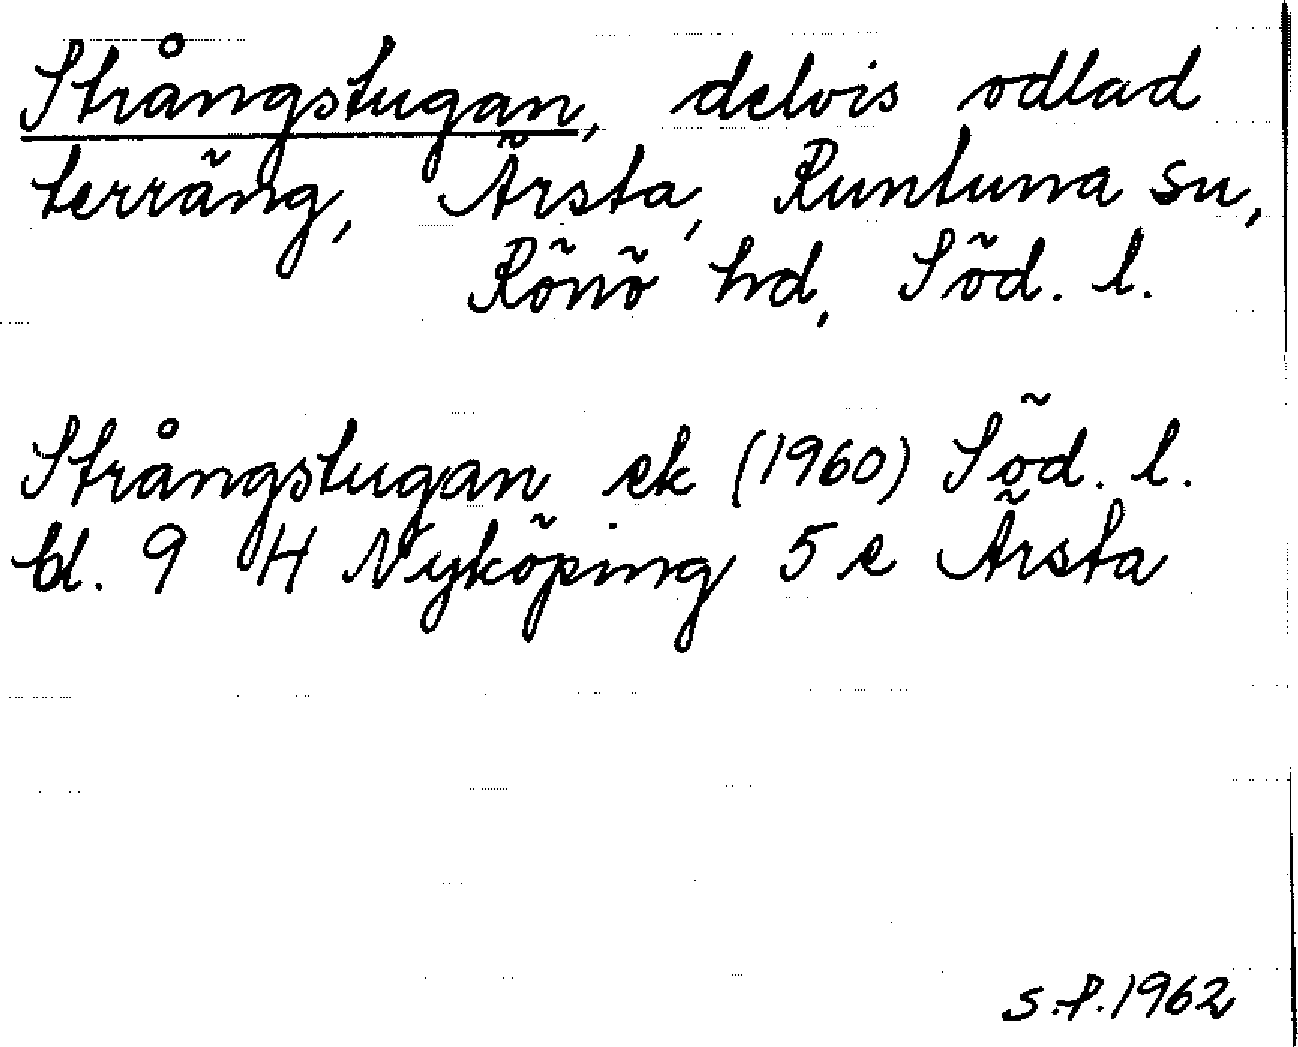 Strångstugan, delvis odlad
terräng, Ärsta, Runtuna sn,
Rönö hd, Söd. l.
Strångstugan ek (1960) Söd. l.
bl. 9 H Nyköping 5 e Ärsta
S.P. 1962